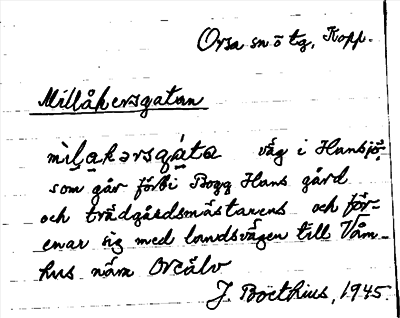 Orsa sn ö tg, Kopp.
Millåkersgatan
mìlakərsgáta väg i Hansjö,
som går förbi Bogg Hans gård
och trädgårdsmästarens och för-
enar sig med landsvägen till Våm-
hus nära Oreälv
J. Boethius, 1945.